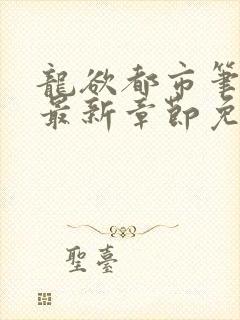 龍欲都市筆
最新章節免
聖臺